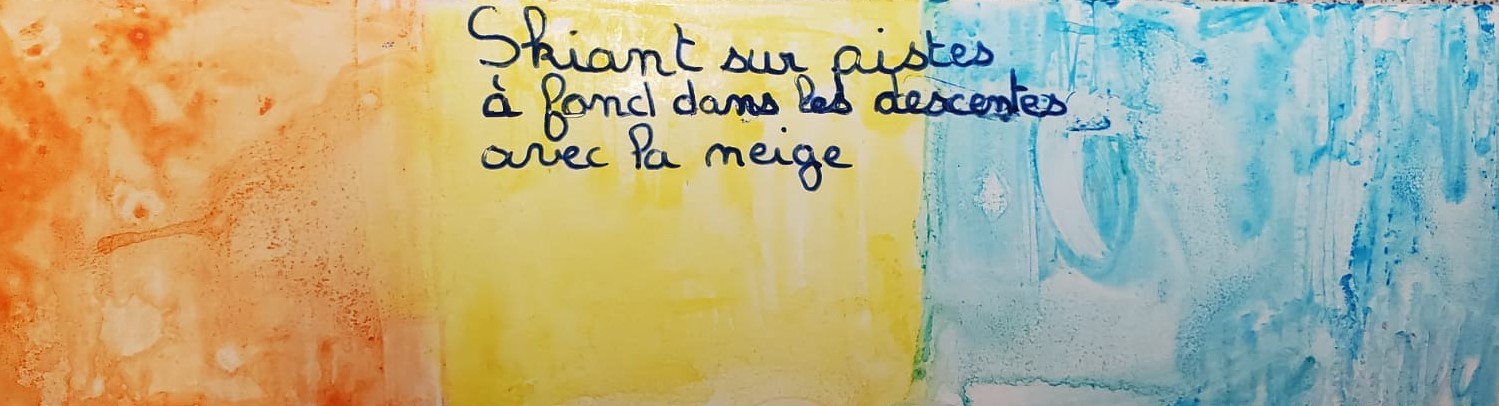 Skiant sur pistes
à fond dans les descentes
avec la neige